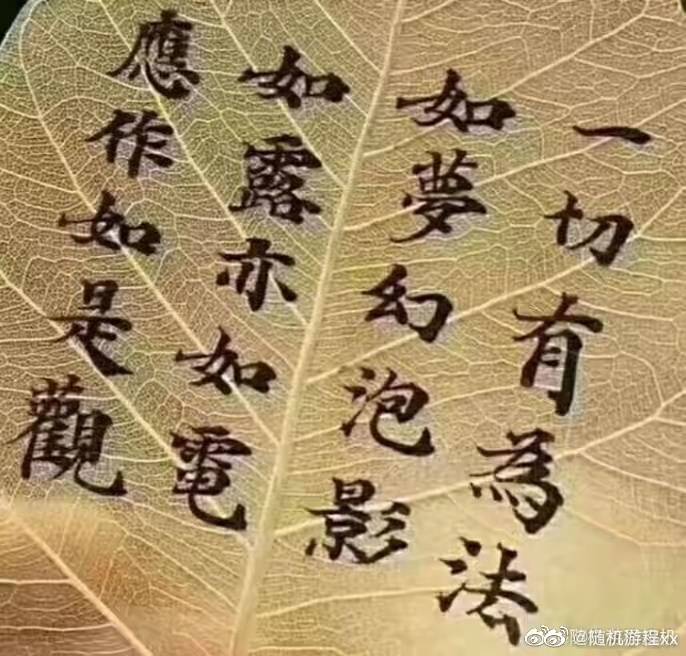 一切有為法
如夢幻泡影
如露亦如電
應作如是觀
@隨机游程xx